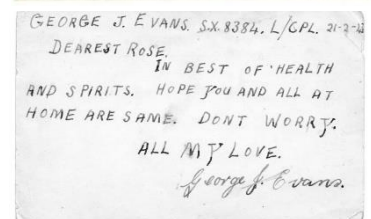 GEORGE J. EVANS. S.X. 8384. L/CPL. 21-2-43
DEAREST ROSE,
IN BEST OF HEALTH
AND SPIRITS. HOPE YOU AND ALL AT
HOME ARE SAME. DONT WORRY.
ALL MY LOVE.
George J. Evans.